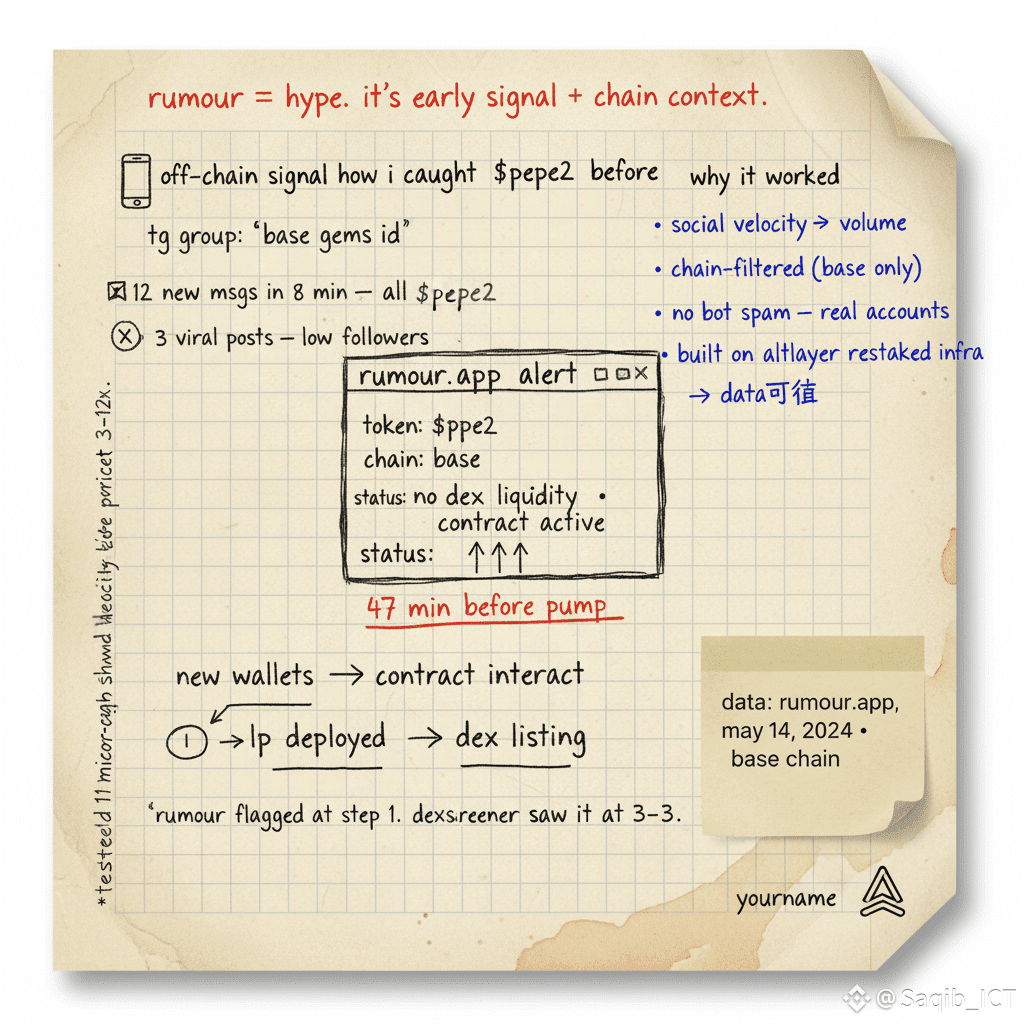 rumour = hype. it's early signal + chain context.
off-chain signal how i caught $pepe2 before
tg group: “base gems id”
12 new msgs in 8 min — all $pepe2
3 viral posts — low followers
why it worked
• social velocity → volume
• chain-filtered (base only)
• no bot spam — real accounts
• built on altlayer restaked infra
→ data可值
rumour.app alert
token: $ppe2
chain: base
status: no dex liquidity •
contract active
status: ↑↑↑
47 min before pump
new wallets → contract interact
1 → lp deployed → dex listing
“rumour flagged at step 1. dexsreener saw it at 3–3.
3–12x.
data: rumour.app,
may 14, 2024 •
base chain
yourname
@Saqib_ICT